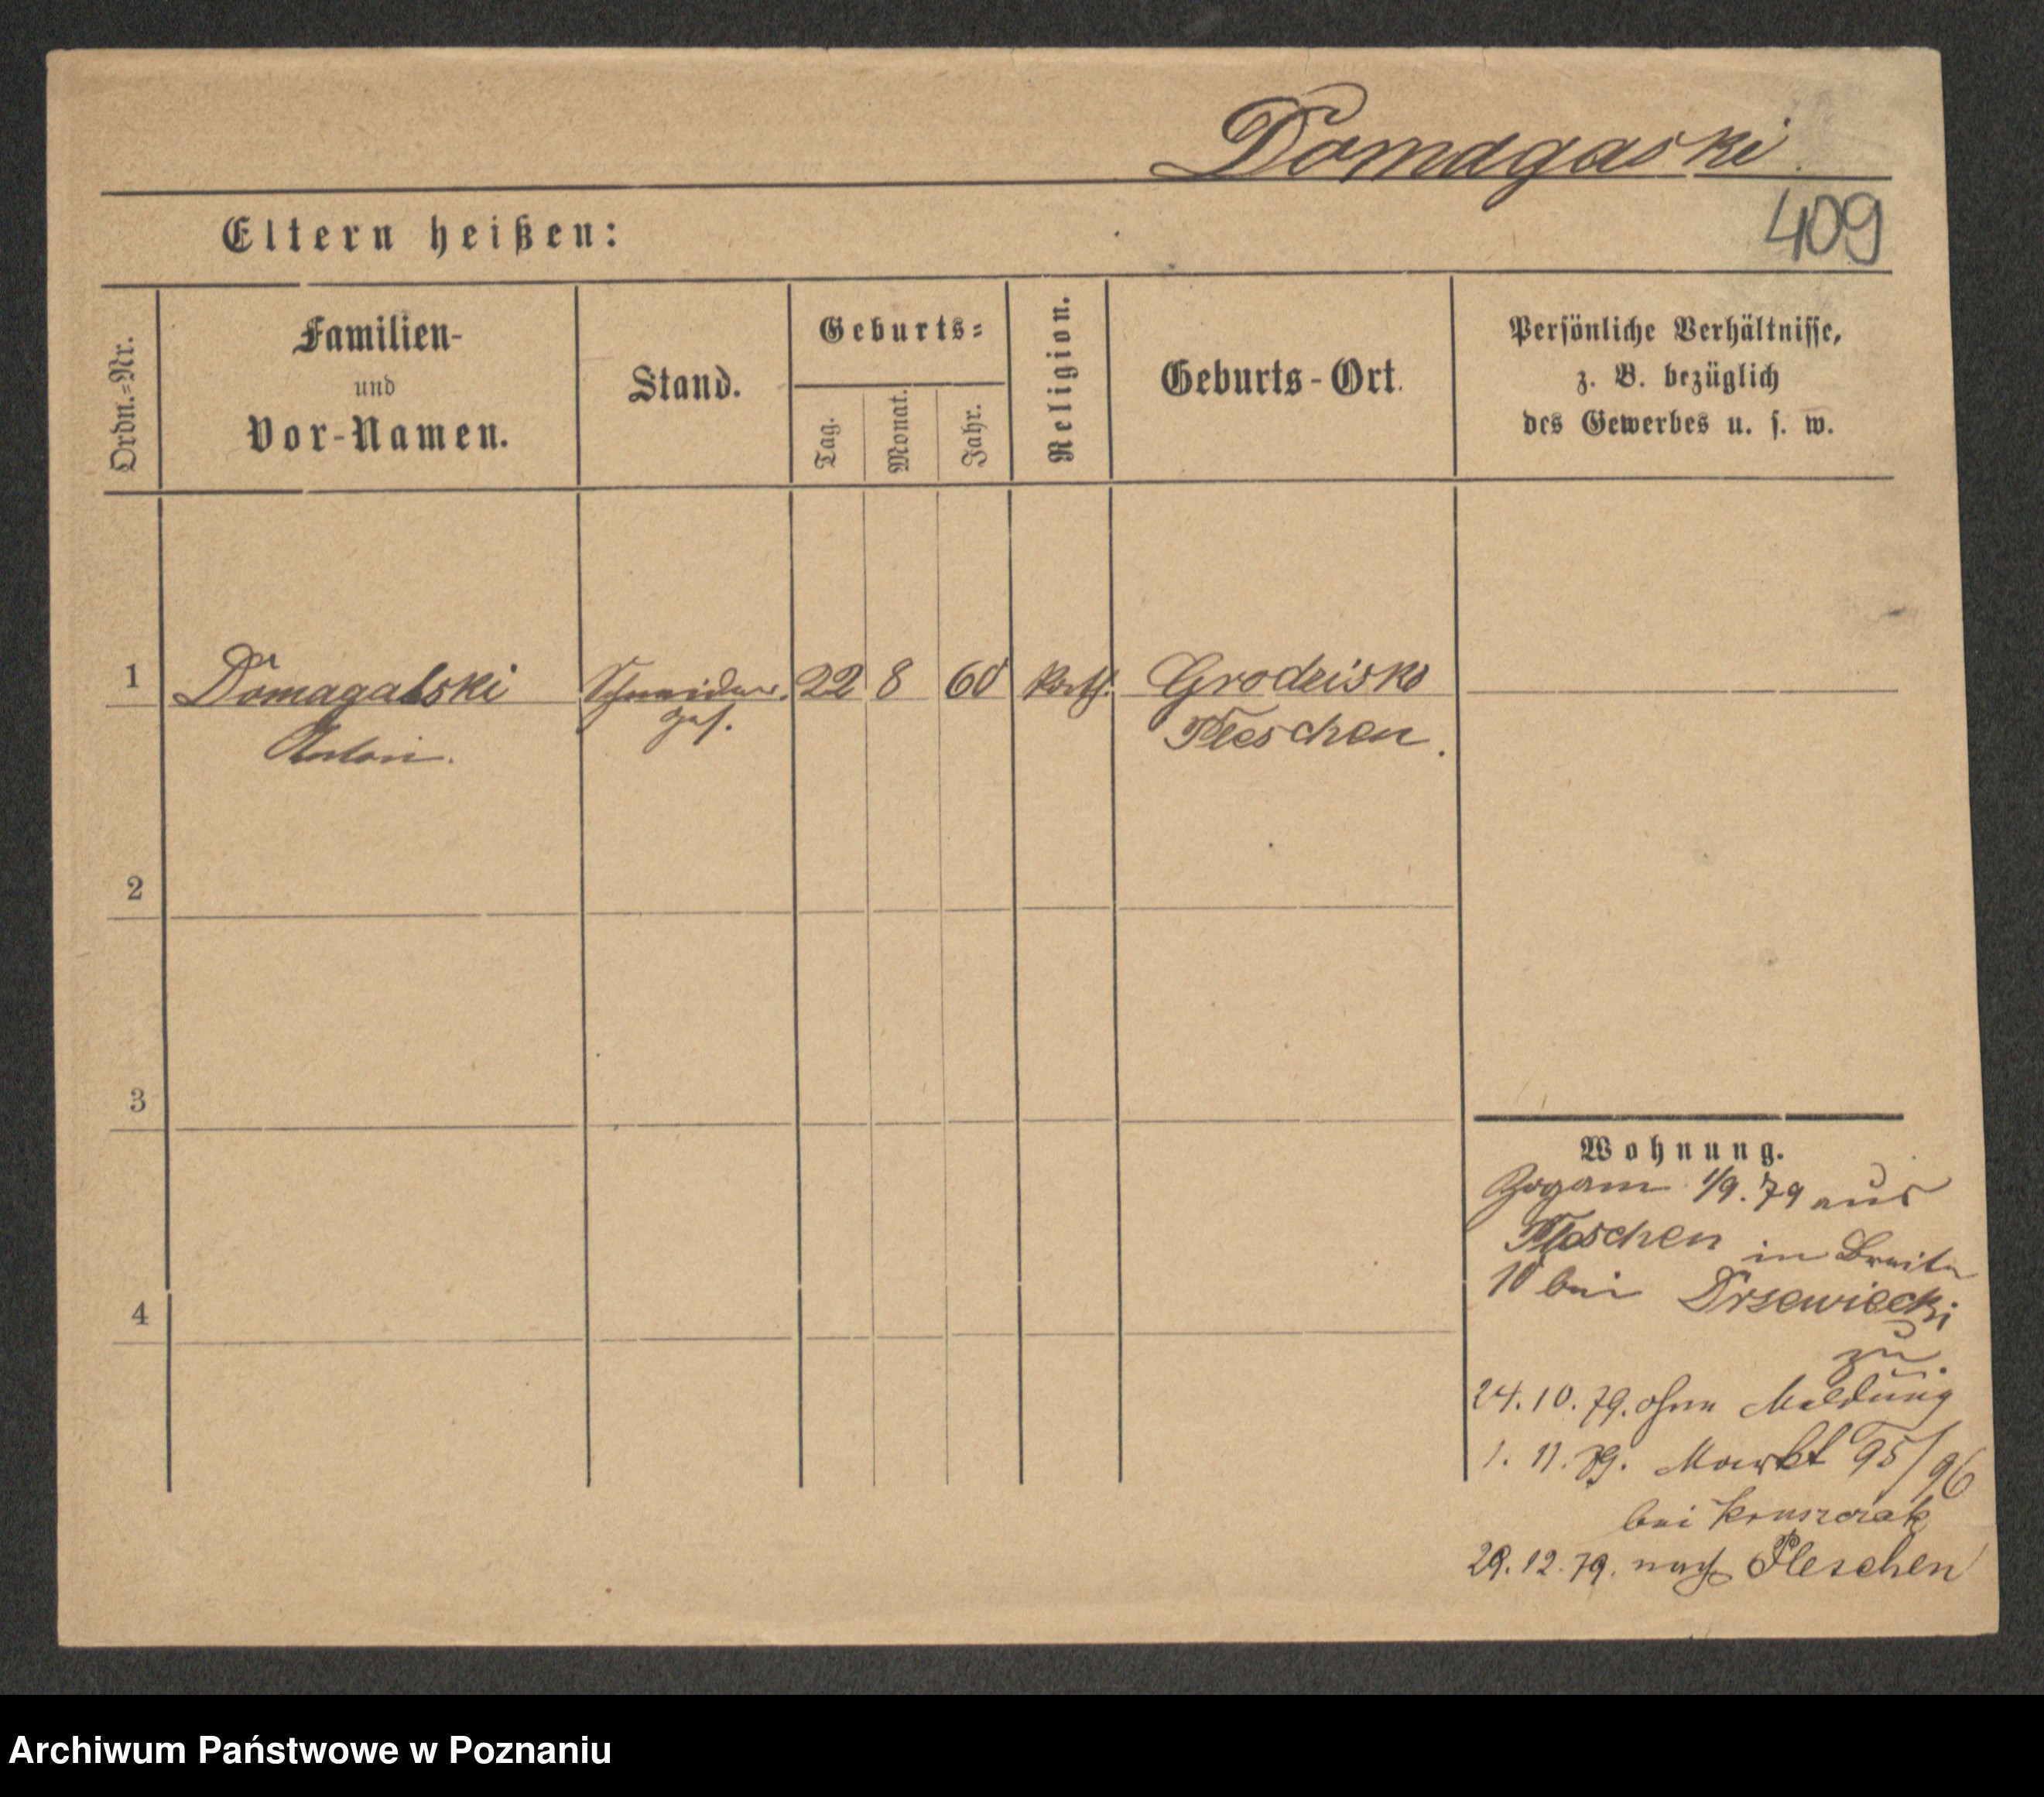 Domagaski
409
Eltern heißen:
Ordn.=Nr.
Familien-
und
Vor-Namen.
Stand.
Geburts=
Tag.
Monat.
Jahr.
Religion.
Geburts-Ort.
Persönliche Verhältnisse,
z. B. bezüglich
des Gewerbes u. s. w.
1 Domagalski Schneider 22 8 60 kath. Grodzisko
Anton. ges. Pleschen.
2
3
4
Wohnung.
Zogam 1/9.79 aus
Pleschen in Breite
10 bei Drsewiecki
zu.
24.10.79. ohne Meldung
1. 11. 79. Markt 95/96
bei
29.12.79. nach Pleschen
Archiwum Państwowe w Poznaniu